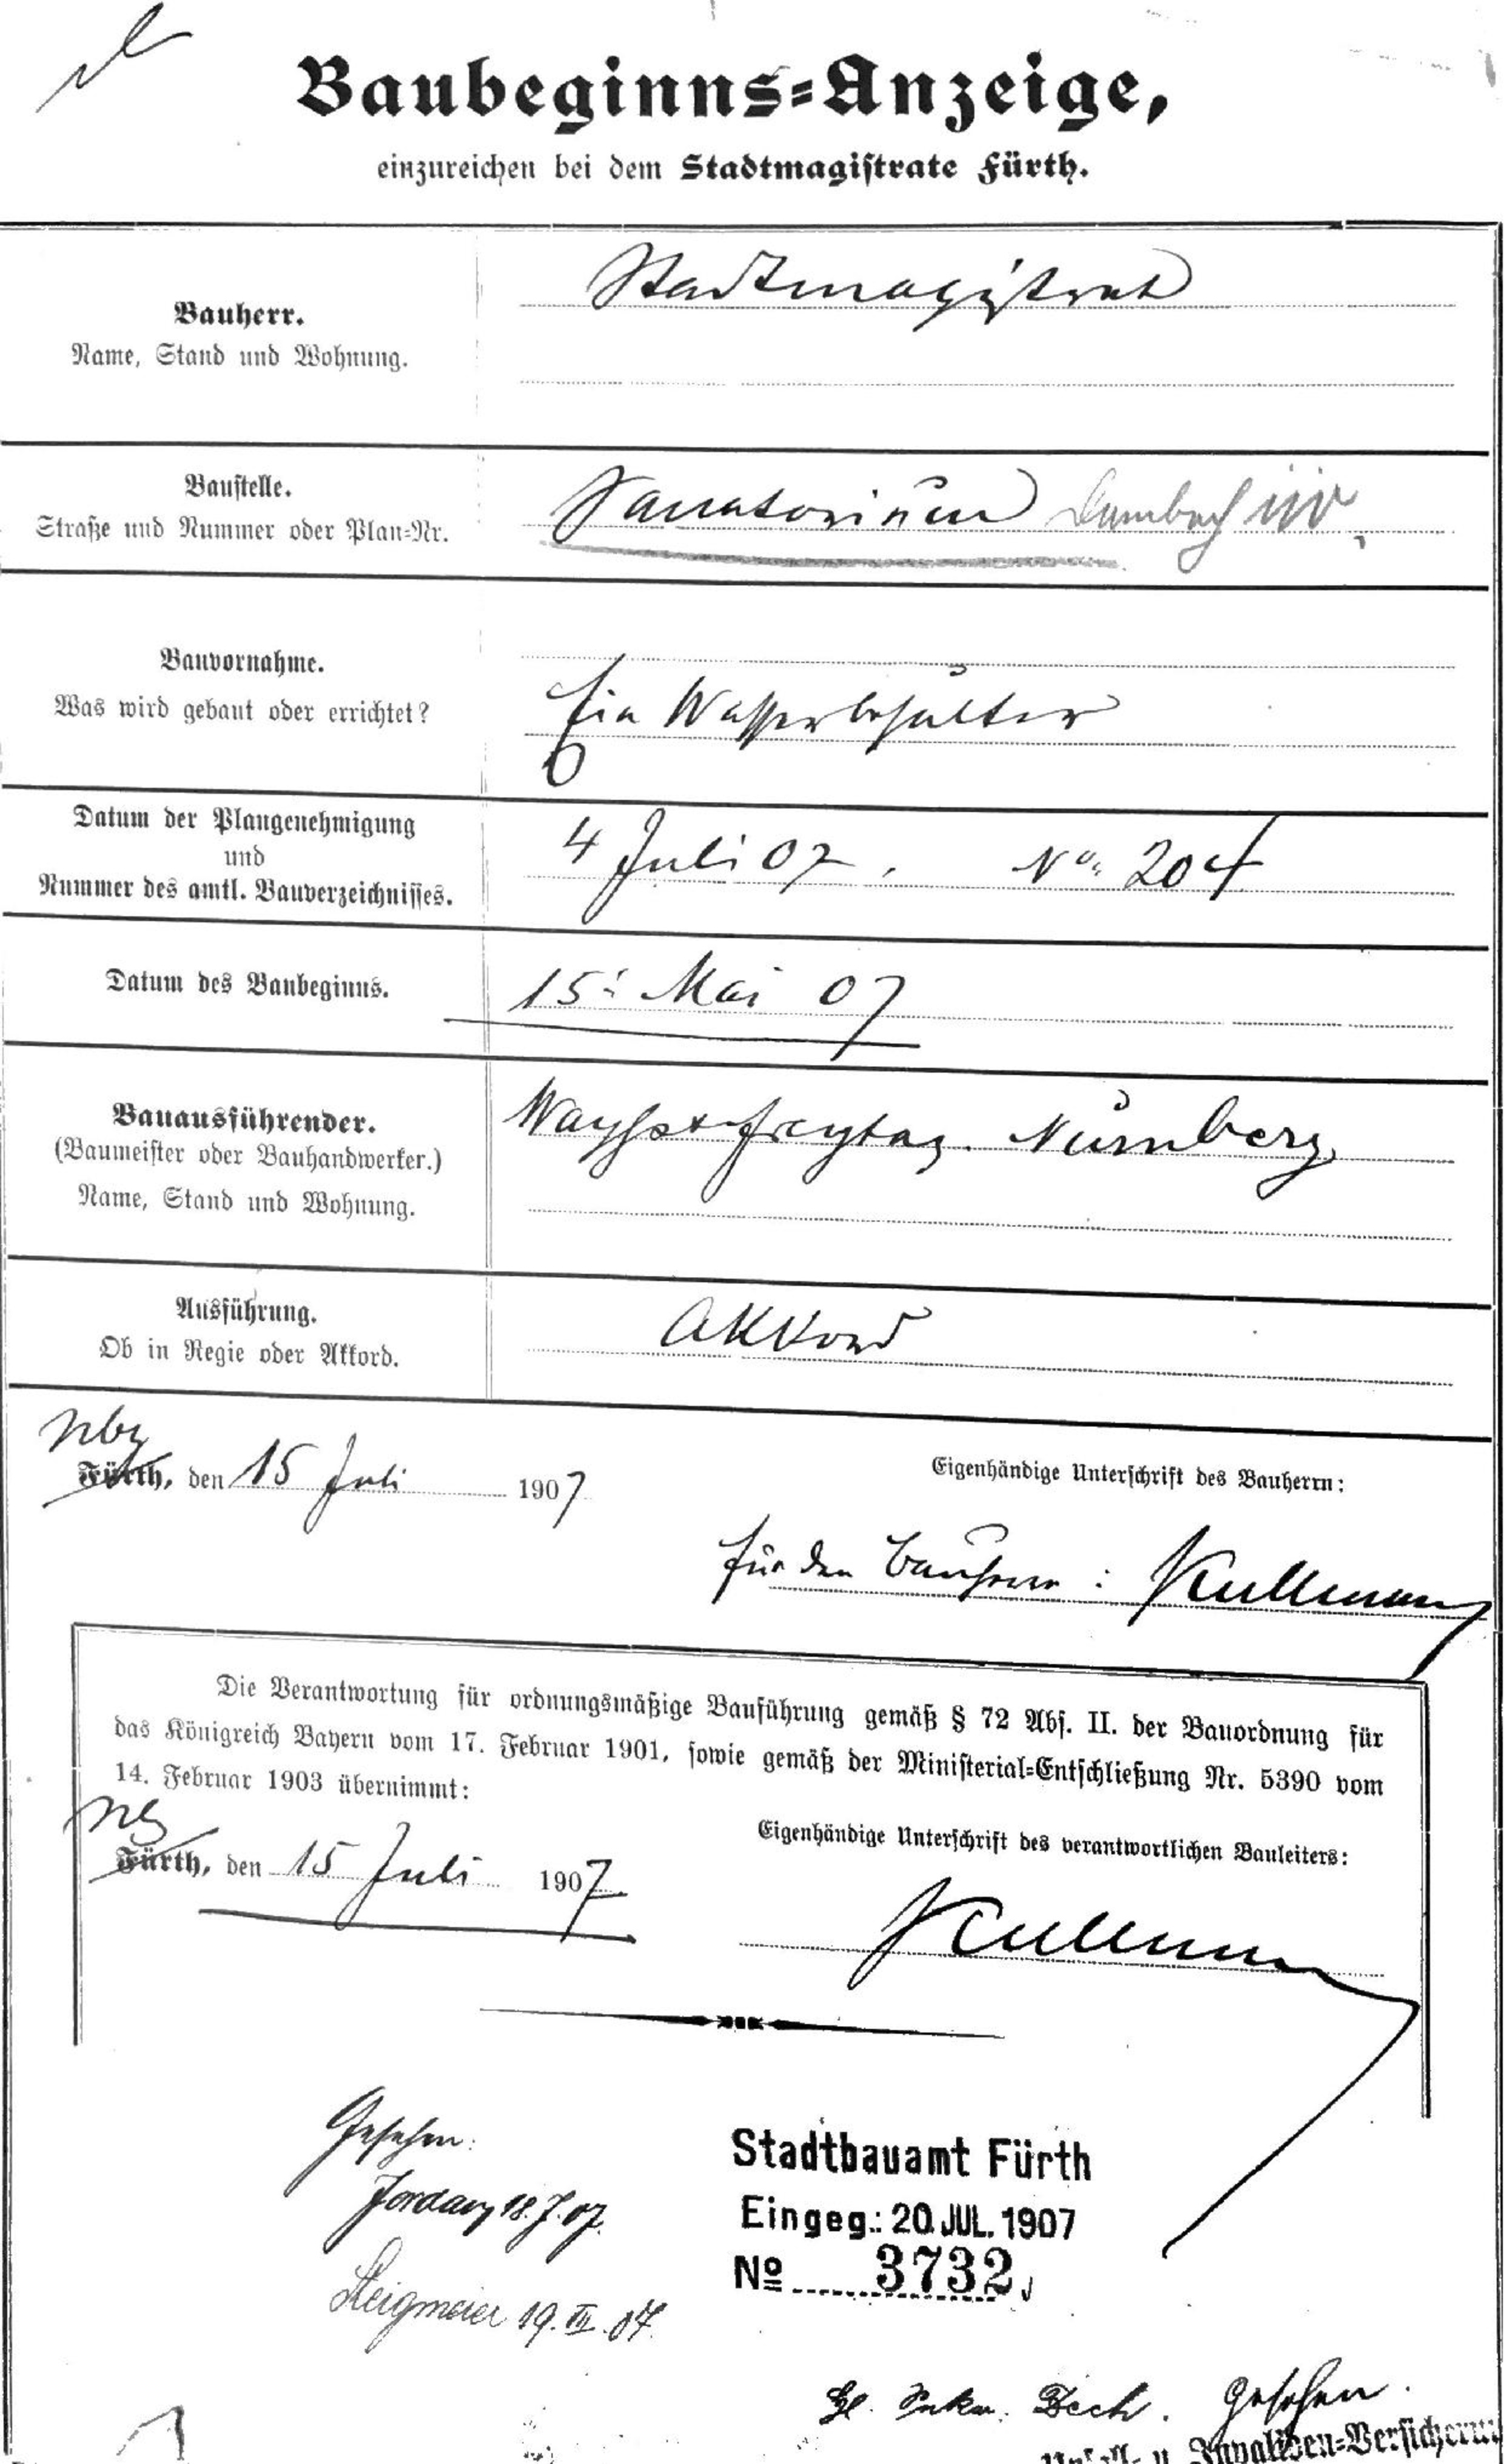 Baubeginns-Anzeige,
einzureichen bei dem Stadtmagistrate Fürth.
Bauherr.
Name, Stand und Wohnung.
Stadtmagistrat
Baustelle.
Straße und Nummer oder Plan-Nr.
Sanatorium Dambach
Bauvornahme.
Was wird gebaut oder errichtet?
Ein Wasserbehälter
Datum der Plangenehmigung
und
Nummer des amtl. Bauverzeichnisses.
4 Juli 07. No. 204
Datum des Baubeginns.
15. Mai 07
Bauausführender.
(Baumeister oder Bauhandwerker.)
Name, Stand und Wohnung.
Wayss & Freytag. Nürnberg
Ausführung.
Ob in Regie oder Akkord.
Akkord
Nbg
Fürth, den 15 Juli 1907
Eigenhändige Unterschrift des Bauherrn:
für den Bauherrn: Kullmann
Die Verantwortung für ordnungsmäßige Bauführung gemäß § 72 Abs. II. der Bauordnung für
das Königreich Bayern vom 17. Februar 1901, sowie gemäß der Ministerial-Entschließung Nr. 5390 vom
14. Februar 1903 übernimmt:
Nbg
Fürth, den 15 Juli 1907
Eigenhändige Unterschrift des verantwortlichen Bauleiters:
Kullmann
Gesehen:
Jordan 18.7.07.
Steigmeier 19. VII. 07.
Stadtbauamt Fürth
Eingeg.: 20. JUL. 1907
No 3732
Gesehen.
Unfall- u. Invaliden-Versicherun